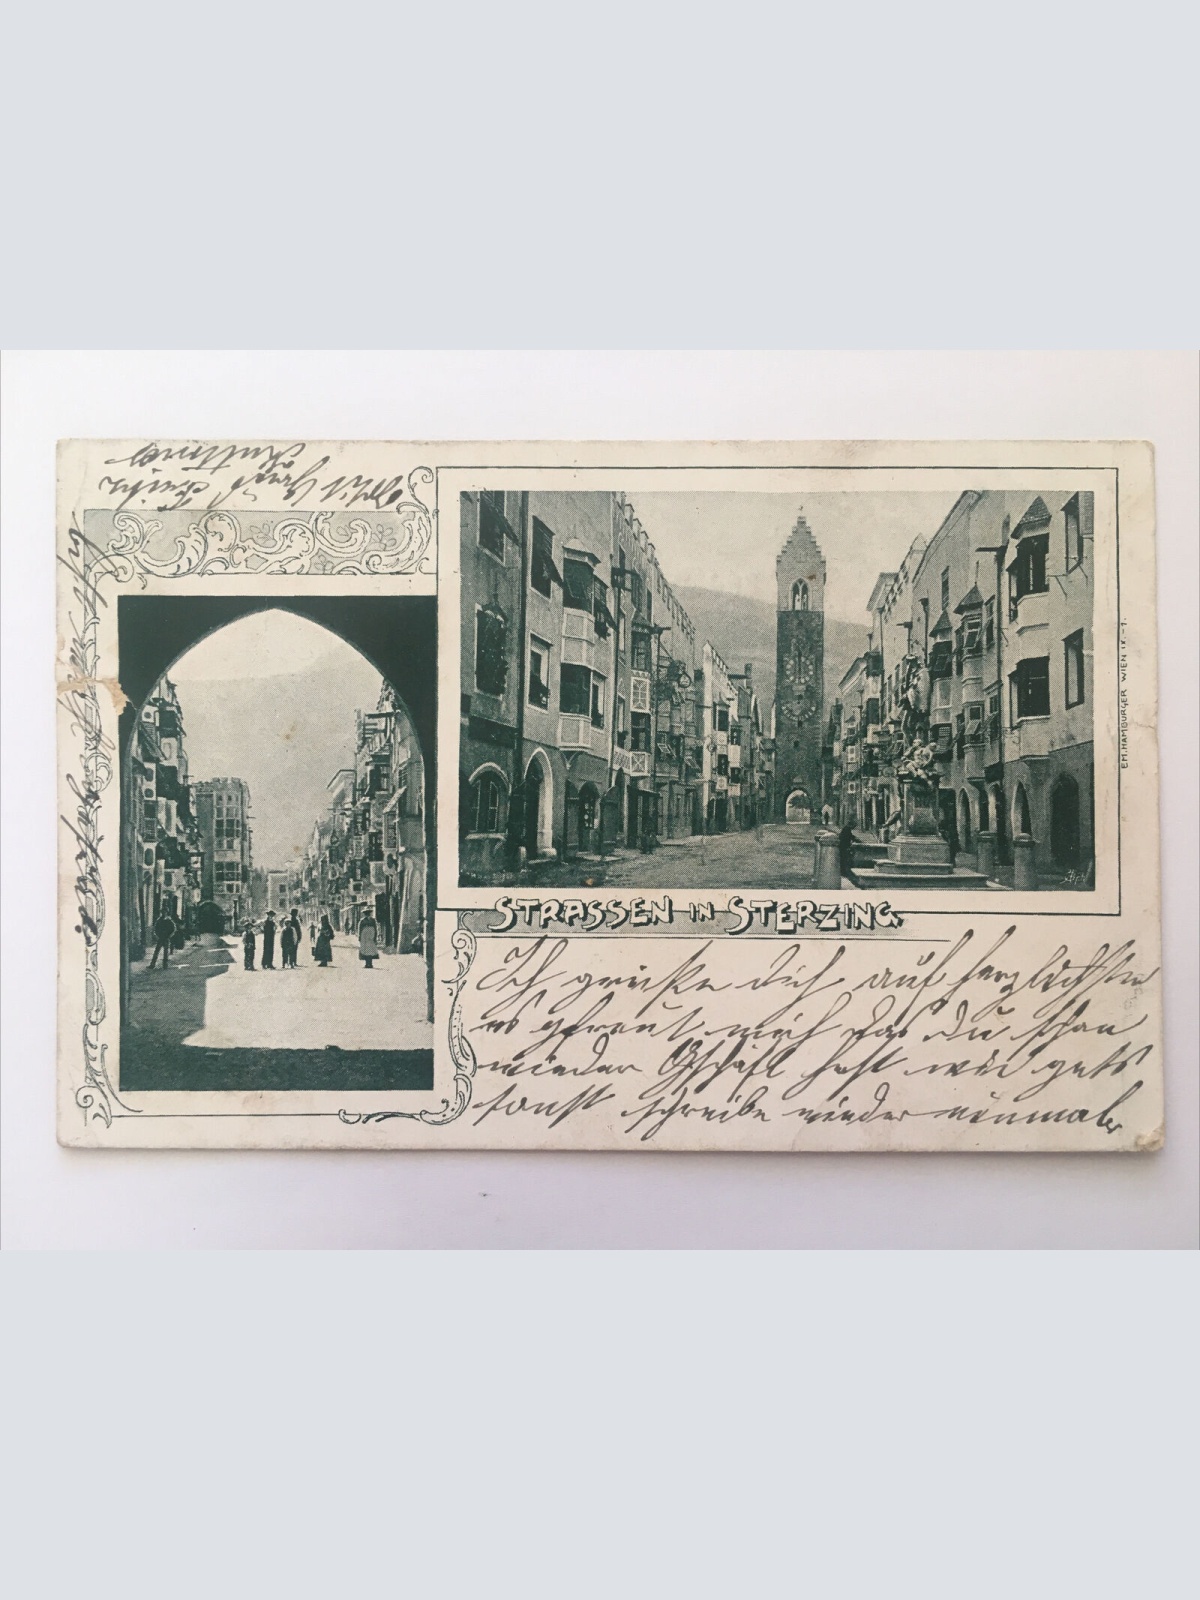 STRASSEN IN STERZING.
EM. HAMBURGER WIEN IX.-1.
Ich grüße dich auf herzlichste
es gfreut mich das du schon
wieder Gschäft hast wie gets
sonst schreibe wieder einmal
Mit Gruß